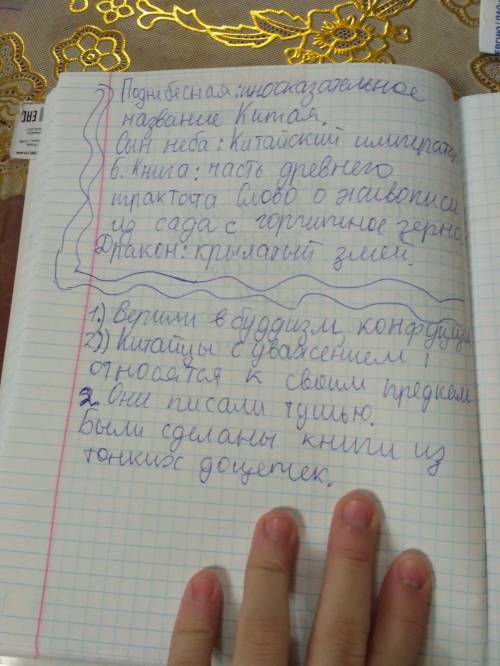 Поднебесная: иносказательное
название Китая.
Сын неба: Китайский императ
Б. Книга: часть древнего
трактата Слово о живописи
из сада с горчичное зерно.
Дракон: крылатый змей.
1.) Верили в буддизм, конфуци
2)) Китайцы с уважением
относятся к своим предкам
2. Они писали тушью.
Были сделаны книги из
тонких дощечек.
EAC